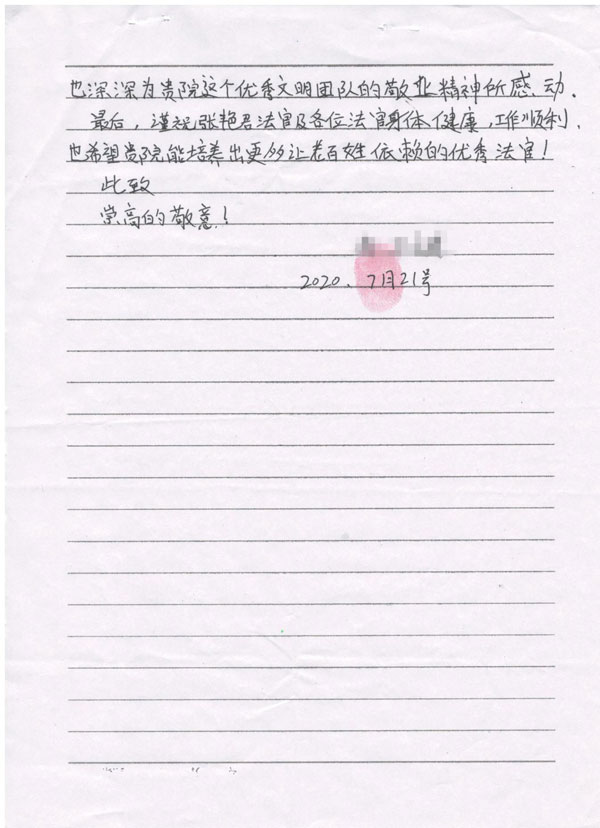 也深深为贵院这个优秀文明团队的敬业精神所感动.
最后，谨祝张艳君法官及各位法官身体健康，工作顺利.
也希望贵院能培养出更多让老百姓依赖的优秀法官！
此致
崇高的敬意！
2020、7月21号